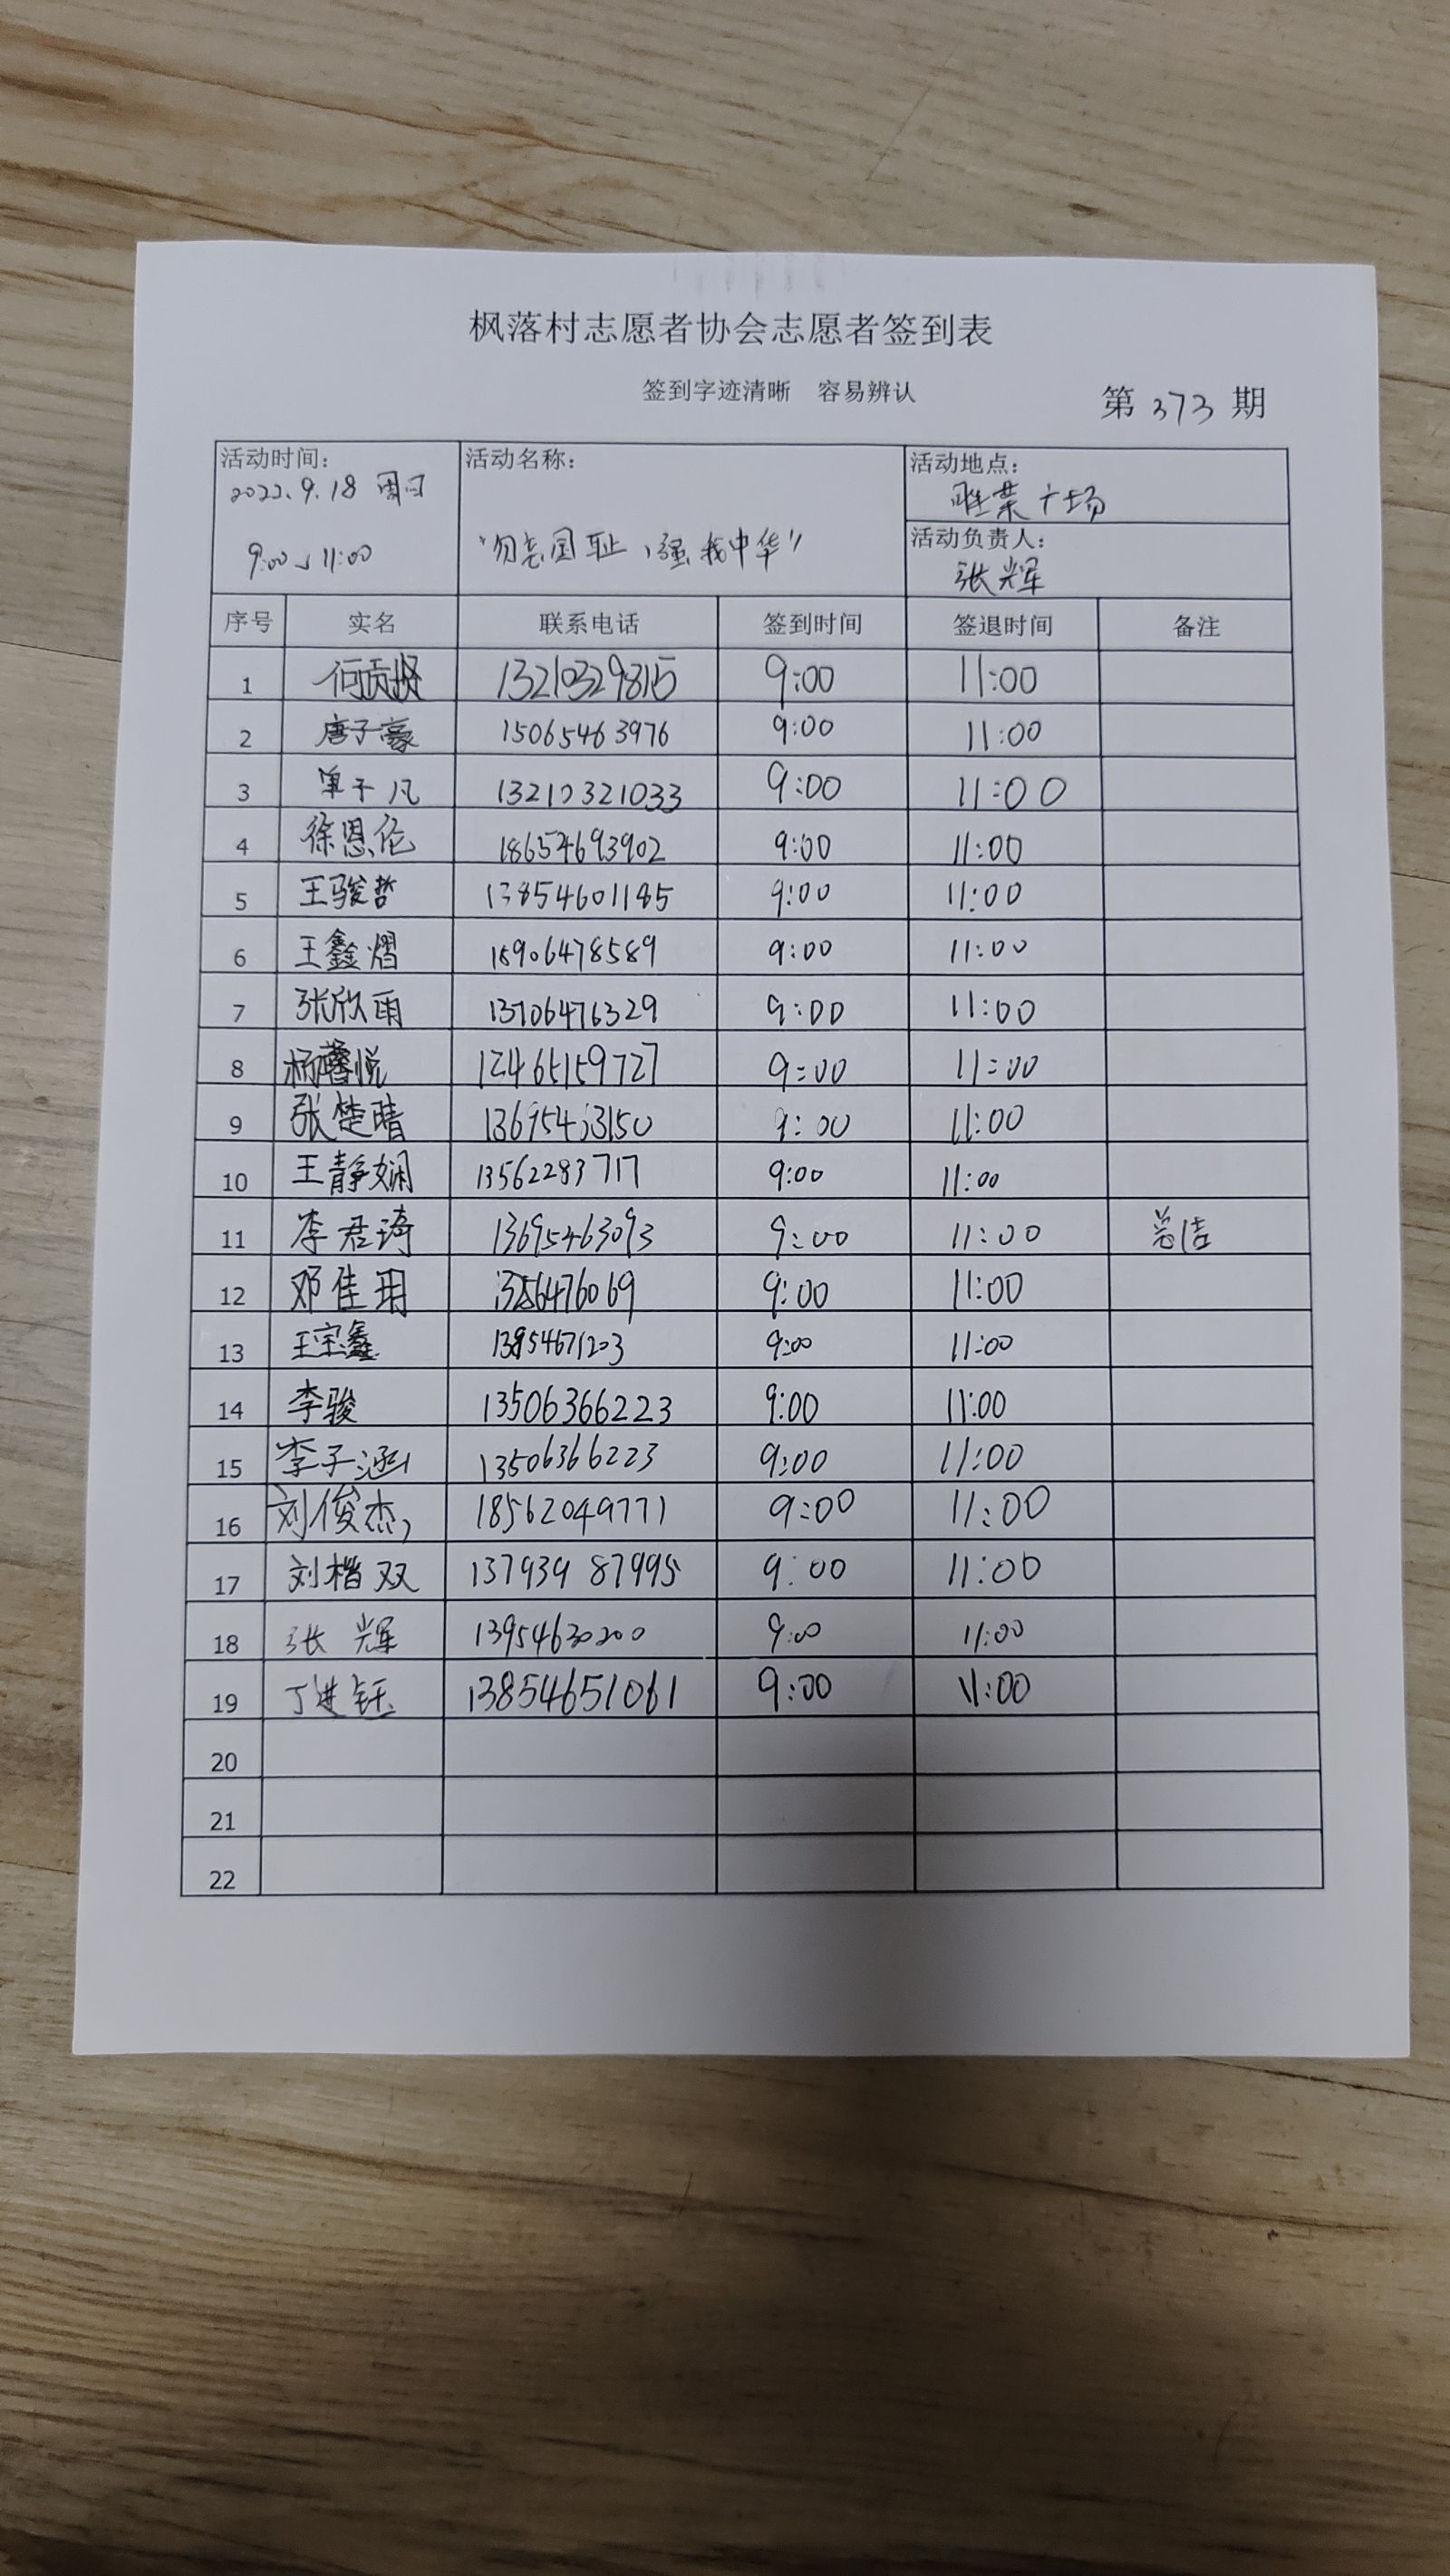 枫落村志愿者协会志愿者签到表
签到字迹清晰 容易辨认
第 373 期
活动时间: 活动名称: 活动地点:
2022.9.18 周日 广场
9:00 11:00 "勿忘国耻,强我中华" 活动负责人:
张辉
序号 实名 联系电话 签到时间 签退时间 备注
1 9:00 11:00
2 唐子豪 15065463976 9:00 11:00
3 单子凡 13210321033 9:00 11:00
4 徐恩伦 18654693902 9:00 11:00
5 王骏哲 13854601185 9:00 11:00
6 王鑫熠 9:00 11:00
7 张欣雨 9:00 11:00
8 杨馨悦 9:00 11:00
9 张楚晴 9:00 11:00
10 王静娴 13562283717 9:00 11:00
11 李君琦 13695463093 9:00 11:00 总结
12 邓佳玥 9:00 11:00
13 王宗鑫 13954671203 9:00 11:00
14 李骏 13506366223 9:00 11:00
15 李子涵 13506366223 9:00 11:00
16 刘俊杰 18562049771 9:00 11:00
17 刘楷双 13793987995 9:00 11:00
18 张辉 13954630200 9:00 11:00
19 丁进钰 13854651061 9:00 11:00
20
21
22